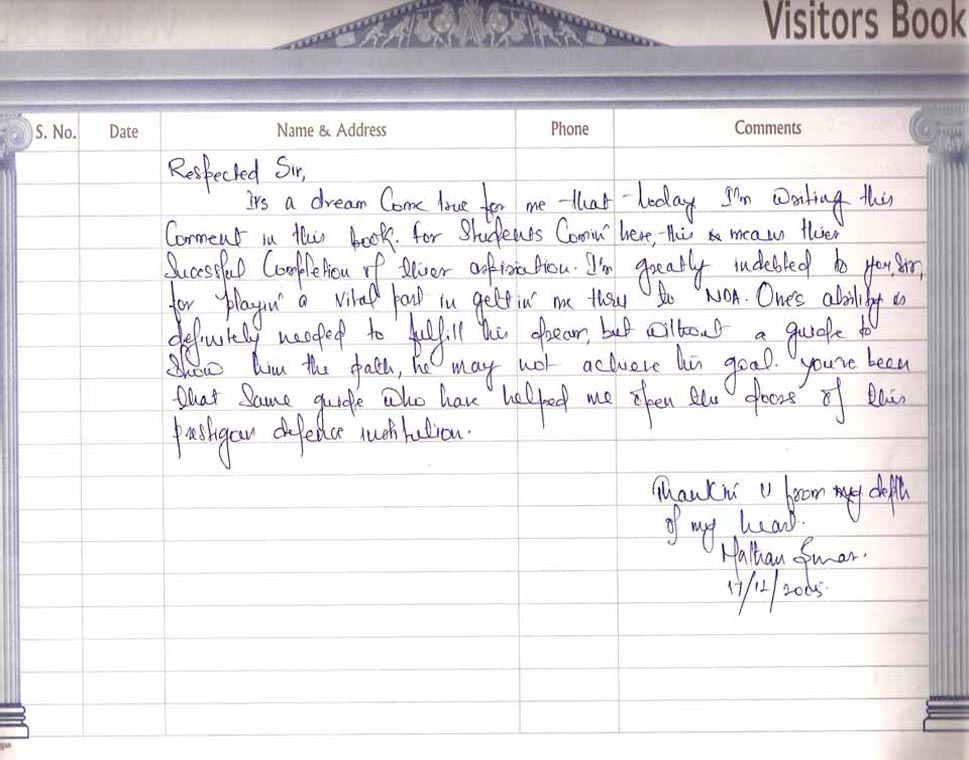 Visitors Book
S. No. Date Name & Address Phone Comments
Respected Sir,
It's a dream Come true for me that today I'm writing this
Comment in this book. for Students Comin' here, this is means thier
Sucessful Completion of thier aspiration. I'm greatly indebted to you, sir,
for playin' a vital part in gettin' me thru to NDA. One's ability is
definitely needed to fulfill his dream, but without a guide to
Show him the path, he may not achieve his goal. you've been
that Same guide who have helped me open the doors of this
defence institution.
Thankin' U from my depth
of my heart.
17/12/2005.